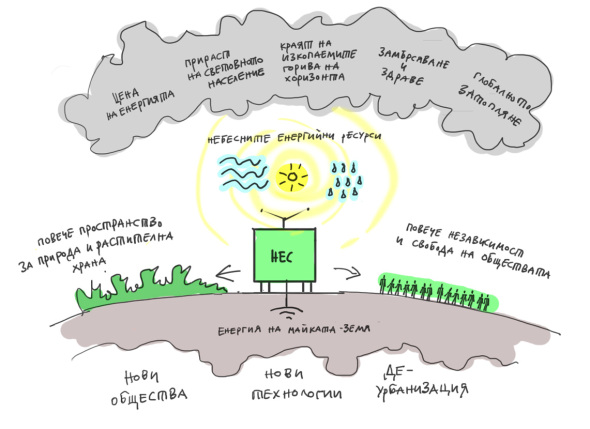 ЦЕНА
НА ЕНЕРГИЯТА
ПРИРАСТ
НА СВЕТОВНОТО
НАСЕЛЕНИЕ
КРАЯТ НА
ИЗКОПАЕМИТЕ
ГОРИВА НА
ХОРИЗОНТА
ЗАМЪРСЯВАНЕ
И
ЗДРАВЕ
ГЛОБАЛНОТО
ЗАТОПЛЯНЕ
НЕБЕСНИТЕ ЕНЕРГИЙНИ РЕСУРСИ
ПОВЕЧЕ ПРОСТРАНСТВО
ЗА ПРИРОДА И РАСТИТЕЛНА
ХРАНА
НЕС
ПОВЕЧЕ НЕЗАВИСИМОСТ
И СВОБОДА НА ОБЩЕСТВАТА
ЕНЕРГИЯ НА МАЙКАТА-ЗЕМЯ
НОВИ
ОБЩЕСТВА
НОВИ
ТЕХНОЛОГИИ
ДЕ-
УРБАНИЗАЦИЯ